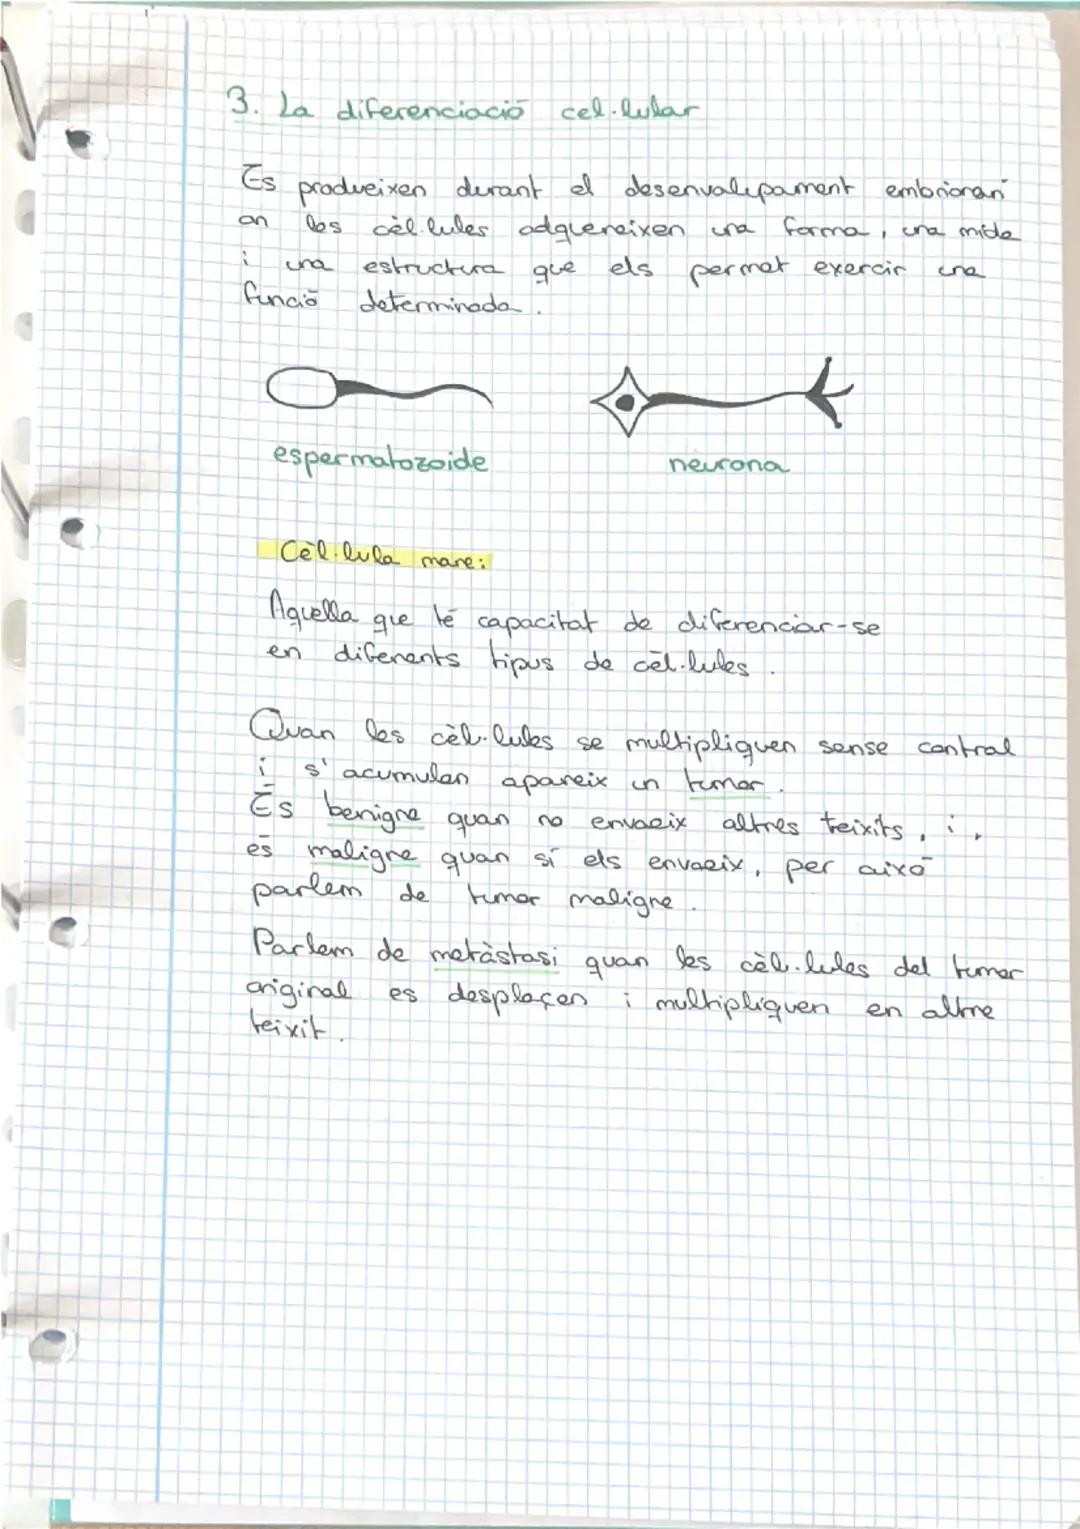 3. La diferenciació cel·lular
Es produeixen durant el desenvolupament embrionari
on les cèl·lules adquereixen una forma, una mida
i una estructura que els permet exercir una
funció determinada.
espermatozoide neurona
Cèl·lula mare:
Aquella que té capacitat de diferenciar-se
en diferents tipus de cèl·lules.
Quan les cèl·lules se multipliquen sense control
i s'acumulen apareix un tumor.
És benigne quan no envaeix altres teixits, i,
és maligne quan sí els envaeix, per això
parlem de tumor maligne.
Parlem de metàstasi quan les cèl·lules del tumor
original es desplaçen i multipliquen en altre
teixit.